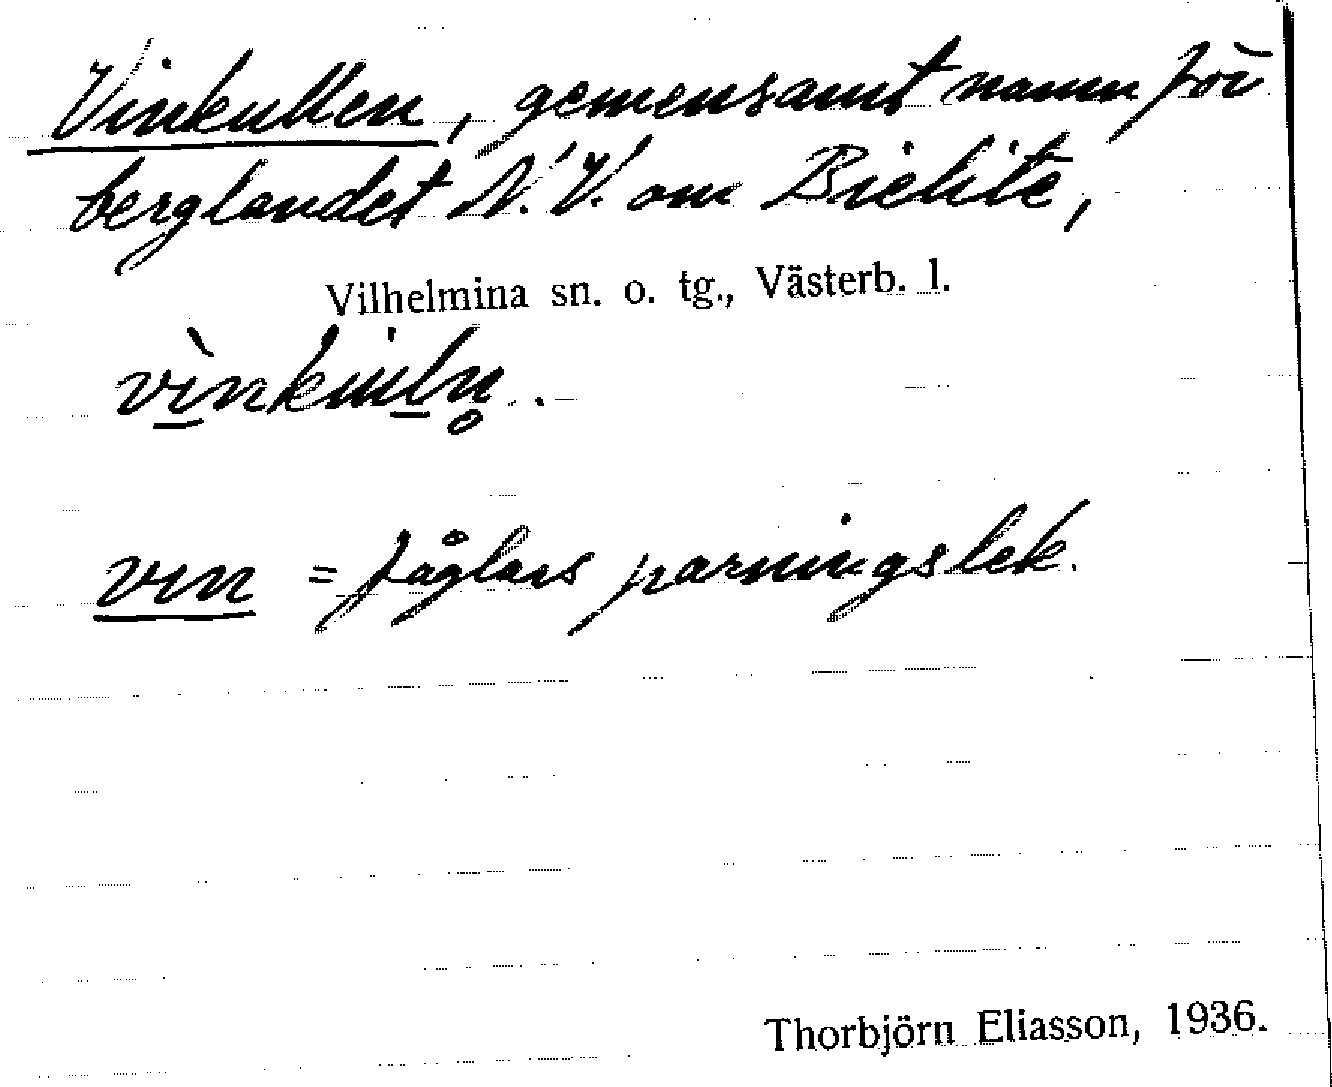 Vinkullen, gemensamt namn för
berglandet N.V. om Bielite,
Vilhelmina sn. o. tg., Västerb. l.
vin = fåglars parningslek.
Thorbjörn Eliasson, 1936.